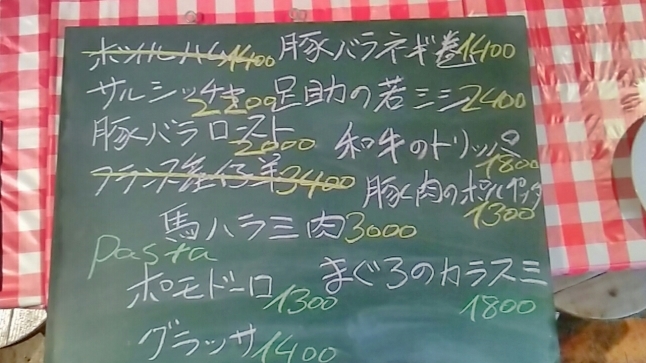 ボイルハム1400 豚バラネギ巻1400
サルシッチャ2200 足助の若シシ2400
豚バラロースト2000 和牛のトリッパ1800
フランス産仔羊3400 豚肉のポルペッタ1300
馬ハラミ肉3000
Pasta
ポモドーロ1300 まぐろのカラスミ1800
グラッサ1400